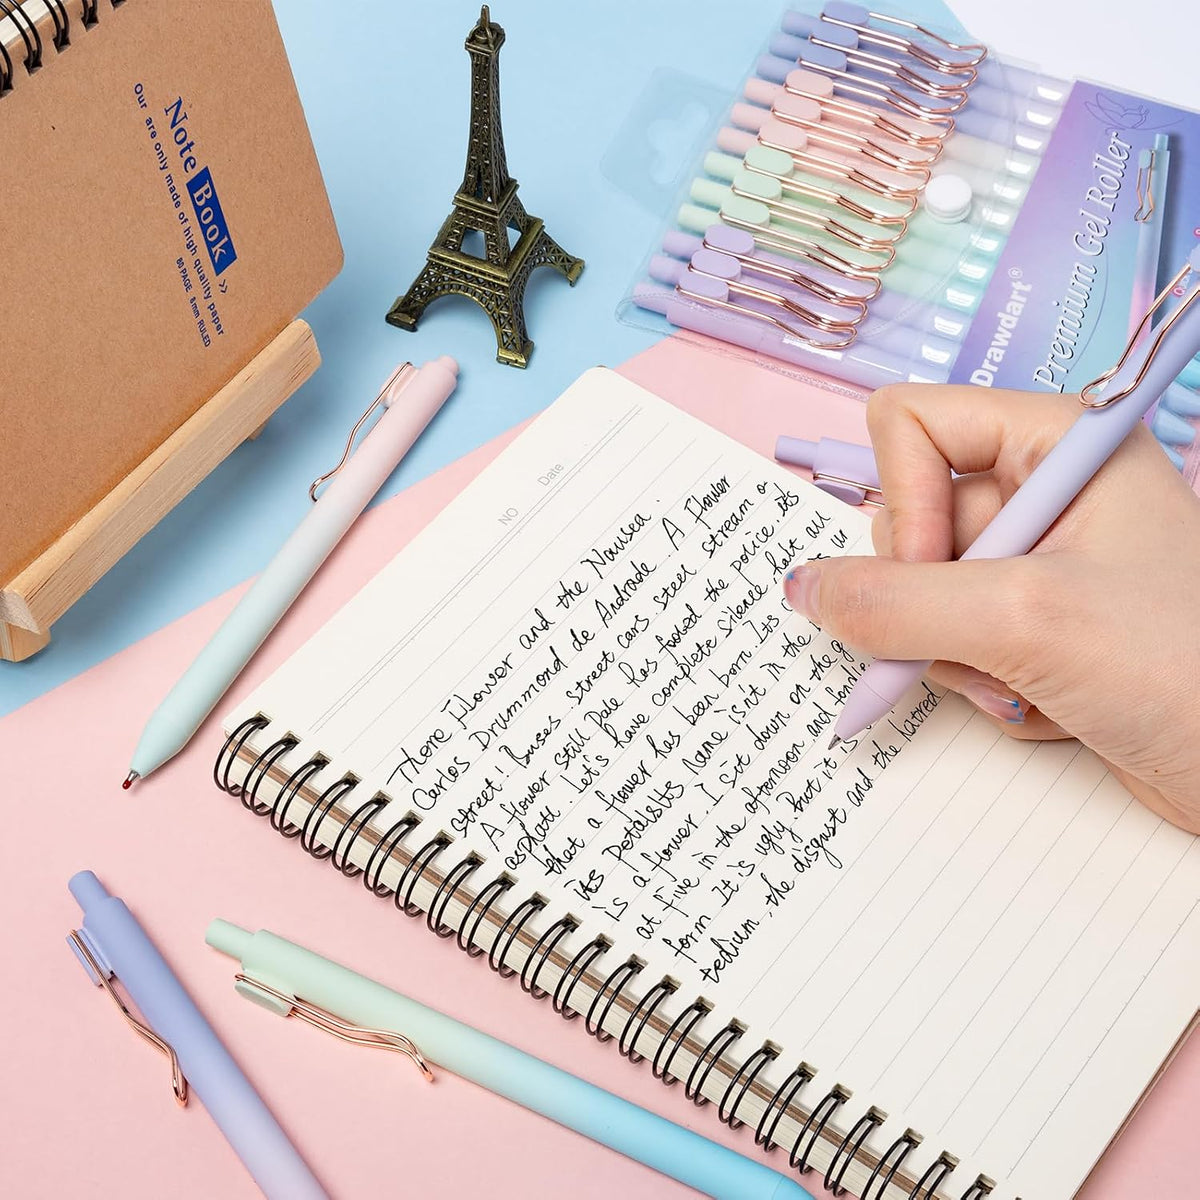 Note Book >>
Our are only made of high quality paper
80 PAGE 8mm RULED
Drawdart®
Premium Gel Roller
NO Date
Thore Flower and the Nausea.
Carlos Drummond de Andrade. A Flower
street! buses street cars steel stream o
A flower still pale has fooled the police. its
asphalt. Let's have complete silence, halt all
that a flower has been born. Its
its PetalsIts Name isn't in the
is a flower. I sit down on the g
at five in the afternoon and fondle
form It is ugly. but it is
tedium, the disgust and the hatred